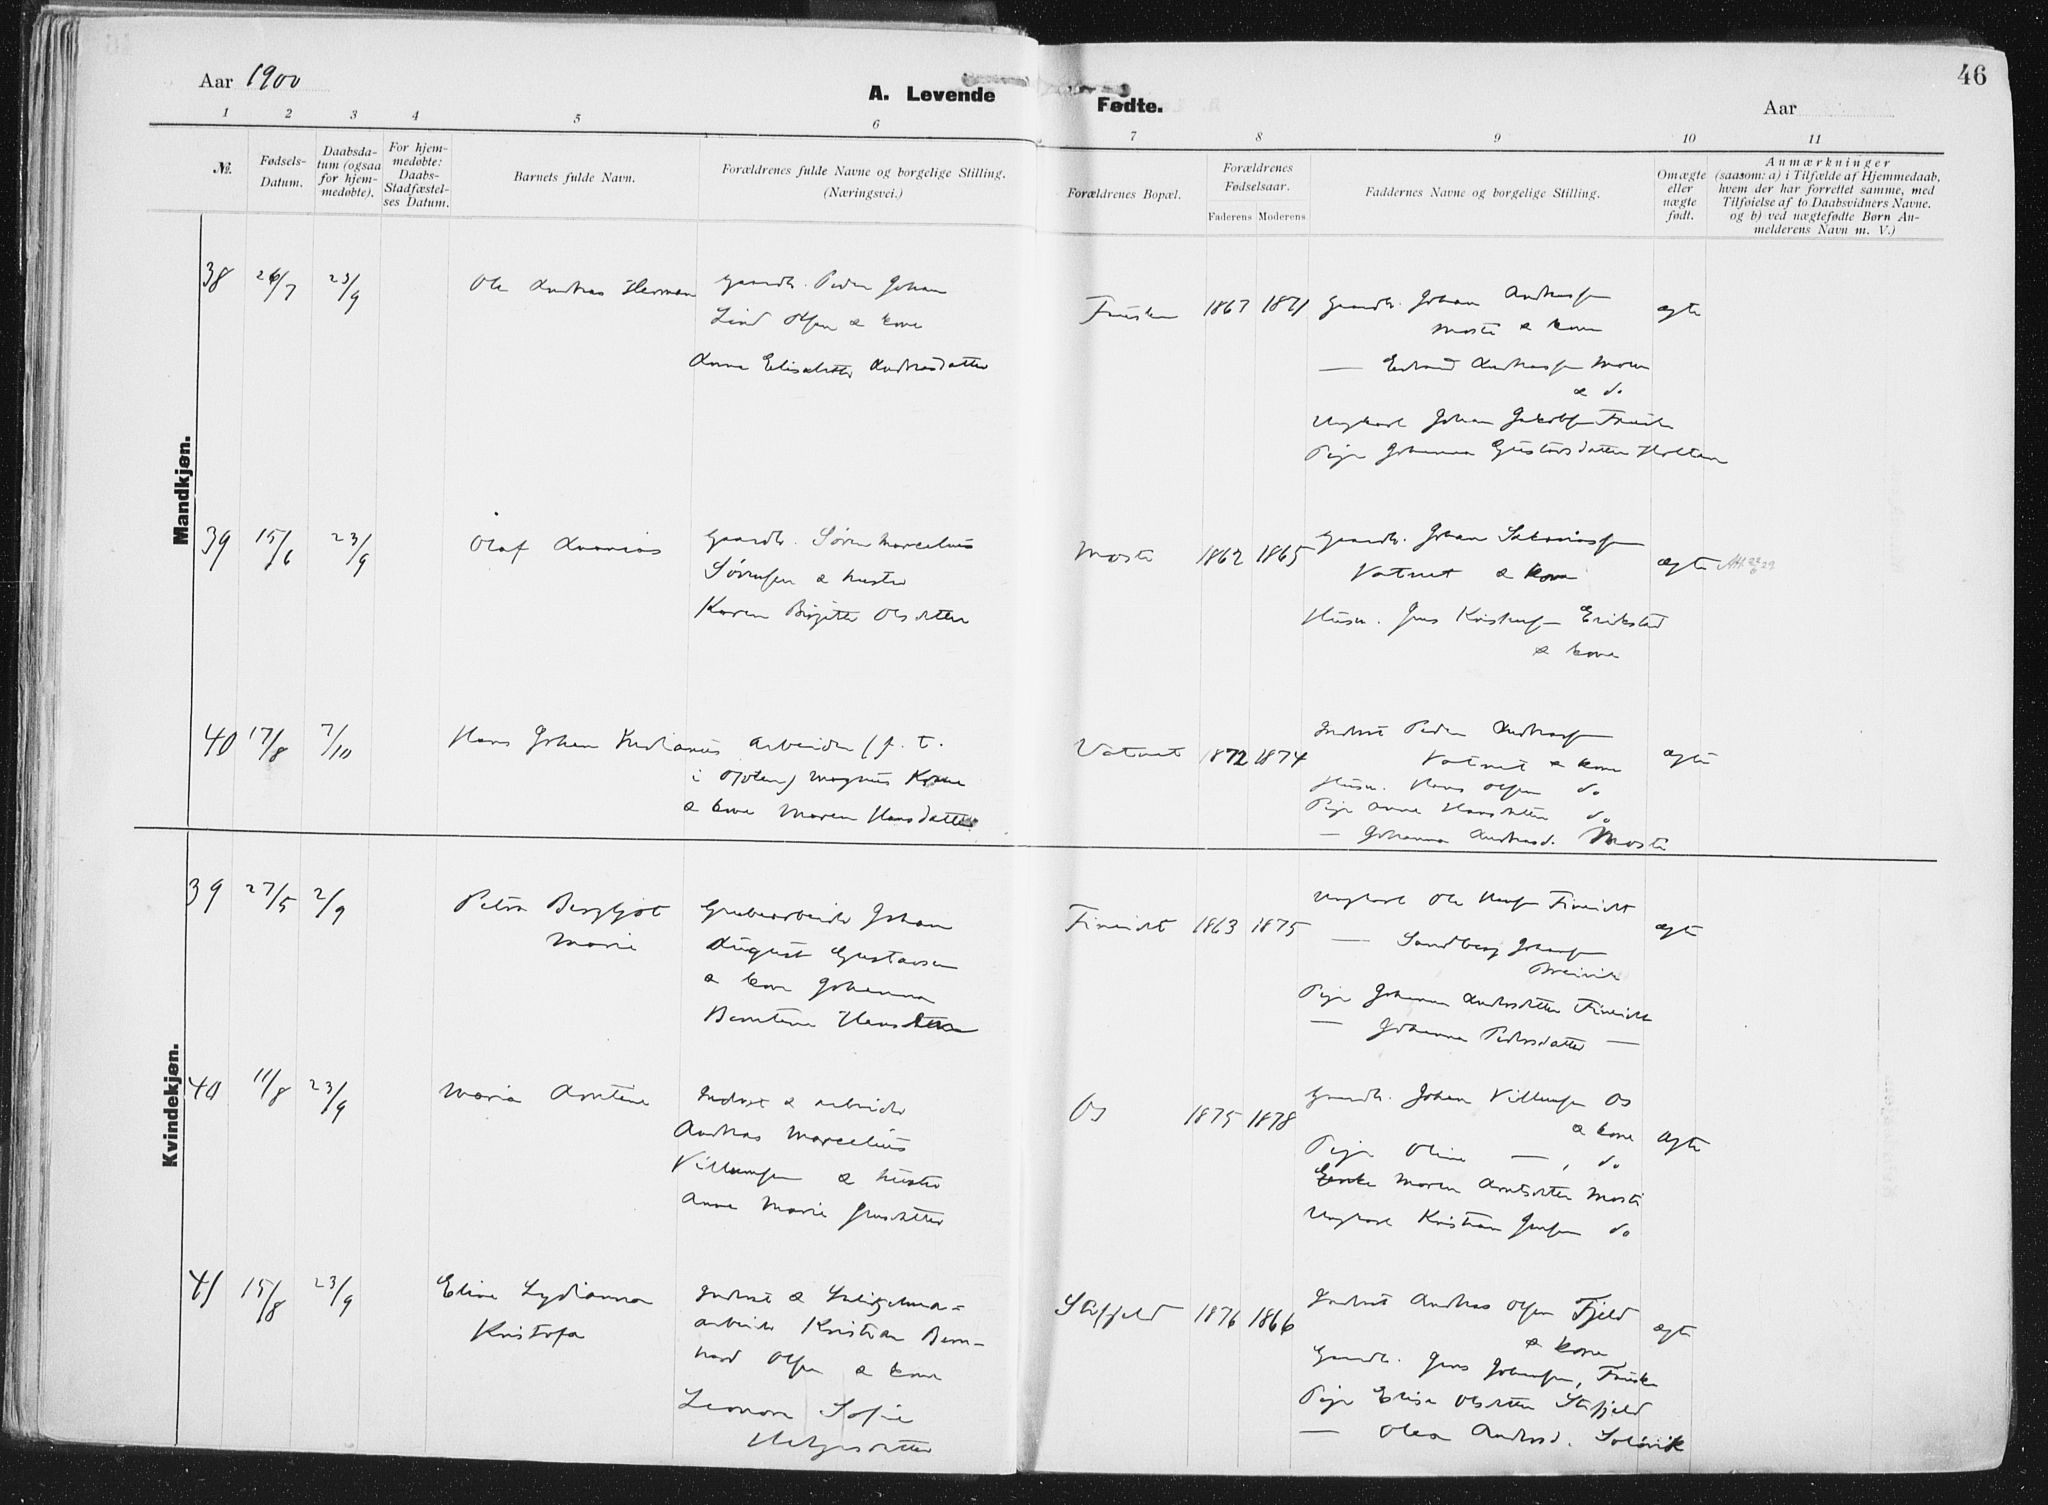 46
Aar 1900
A. Levende Fødte.
Aar
1 2 3 4 5 6 7 8 9 10 11
№.
Fødsels-
Datum.
Daabsda-
tum (ogsaa
for hjem-
medøbte).
For hjem-
medøbte:
Daabs-
Stadfæstel-
ses Datum.
Barnets fulde Navn.
Forældrenes fulde Navne og borgelige Stilling.
(Næringsvei.)
Forældrenes Bopæl.
Forældrenes
Fødselsaar.
Faderens Moderens
Faddernes Navne og borgelige Stilling.
Om ægte
eller
nægte
født.
Anmærkninger
(saasom: a) i Tilfælde af Hjemmedaab,
hvem der har forrettet samme, med
Tilføielse af to Daabsvidners Navne.
og b) ved nægtefødte Børn An-
melderens Navn m. V.)
Mandkjøn.
38 26/7 23/9
Ole Andreas Herman
Gaardb. Peder Johan
Lind Olsen & kone
Anna Elisabeth Andreasdatter
1867 1871
Gaardb. Johan Andreassen
Mosti & kone
— Andreassen Moen
& do
Ungkarl Johan Jakobsen
Pige Johanna Gustavsdatter Holtan
ægte
39 15/6 23/9
Olaf Ananias
Gaardb. Søren Marcelius
Sørensen & hustru
Karen Birgitte Olsdatter
Mosti
1862 1865
Gaardb. Johan Sakariassen
Vatnet & kone
Husm. Jens Kristensen Erikstad
& kone
ægte
40 17/8 7/10
Hans Johan
Arbeider (f. t.
i Ofoten) Magnus
& kone Maren Hansdatter
Vatnet
1872 1874
Inderst Peder Andreassen
Vatnet & kone
Husm. Hans Olsen do
Pige Anne Hansdatter do
— Johanna Andreasd. Mosti
ægte
Kvindekjøn.
39 27/5 2/9
Petra Bergljot
Marie
Grubearbeider Johan
August Gustavsen
& kone Johanna
Berntine Hansdatter
Fineidet
1863 1875
Ungkarl Ole Fineidet
— Sandberg Johansen
Breivik
Pige Johanna Andersdatter Fineidet
— Johanna Pedersdatter —
ægte
40 11/8 23/9
Maria Arntine
Inderst & arbeider
Andreas Marcelius
Villumsen & hustru
Anne Marie Jensdatter
Os
1875 1878
Gaardb. Johan Villumsen Os
& kone
Pige Oline —, do
Enke Maren Arntsdatter Mosti
Ungkarl Kristian Jensen do
ægte
41 15/8 23/9
Eline Lydianna
Kristofa
Inderst & Sulitjelma-
arbeider Kristian Bern-
hard Olsen & kone
Leonore Sofie
Helgesdatter
Stifjeld
1876 1866
Inderst Andreas Olsen Fjeld
& kone
Gaardb. Jens Johansen,
Pige Elise Olsdatter Stifjeld
— Olea Andreasd. Solvik
ægte